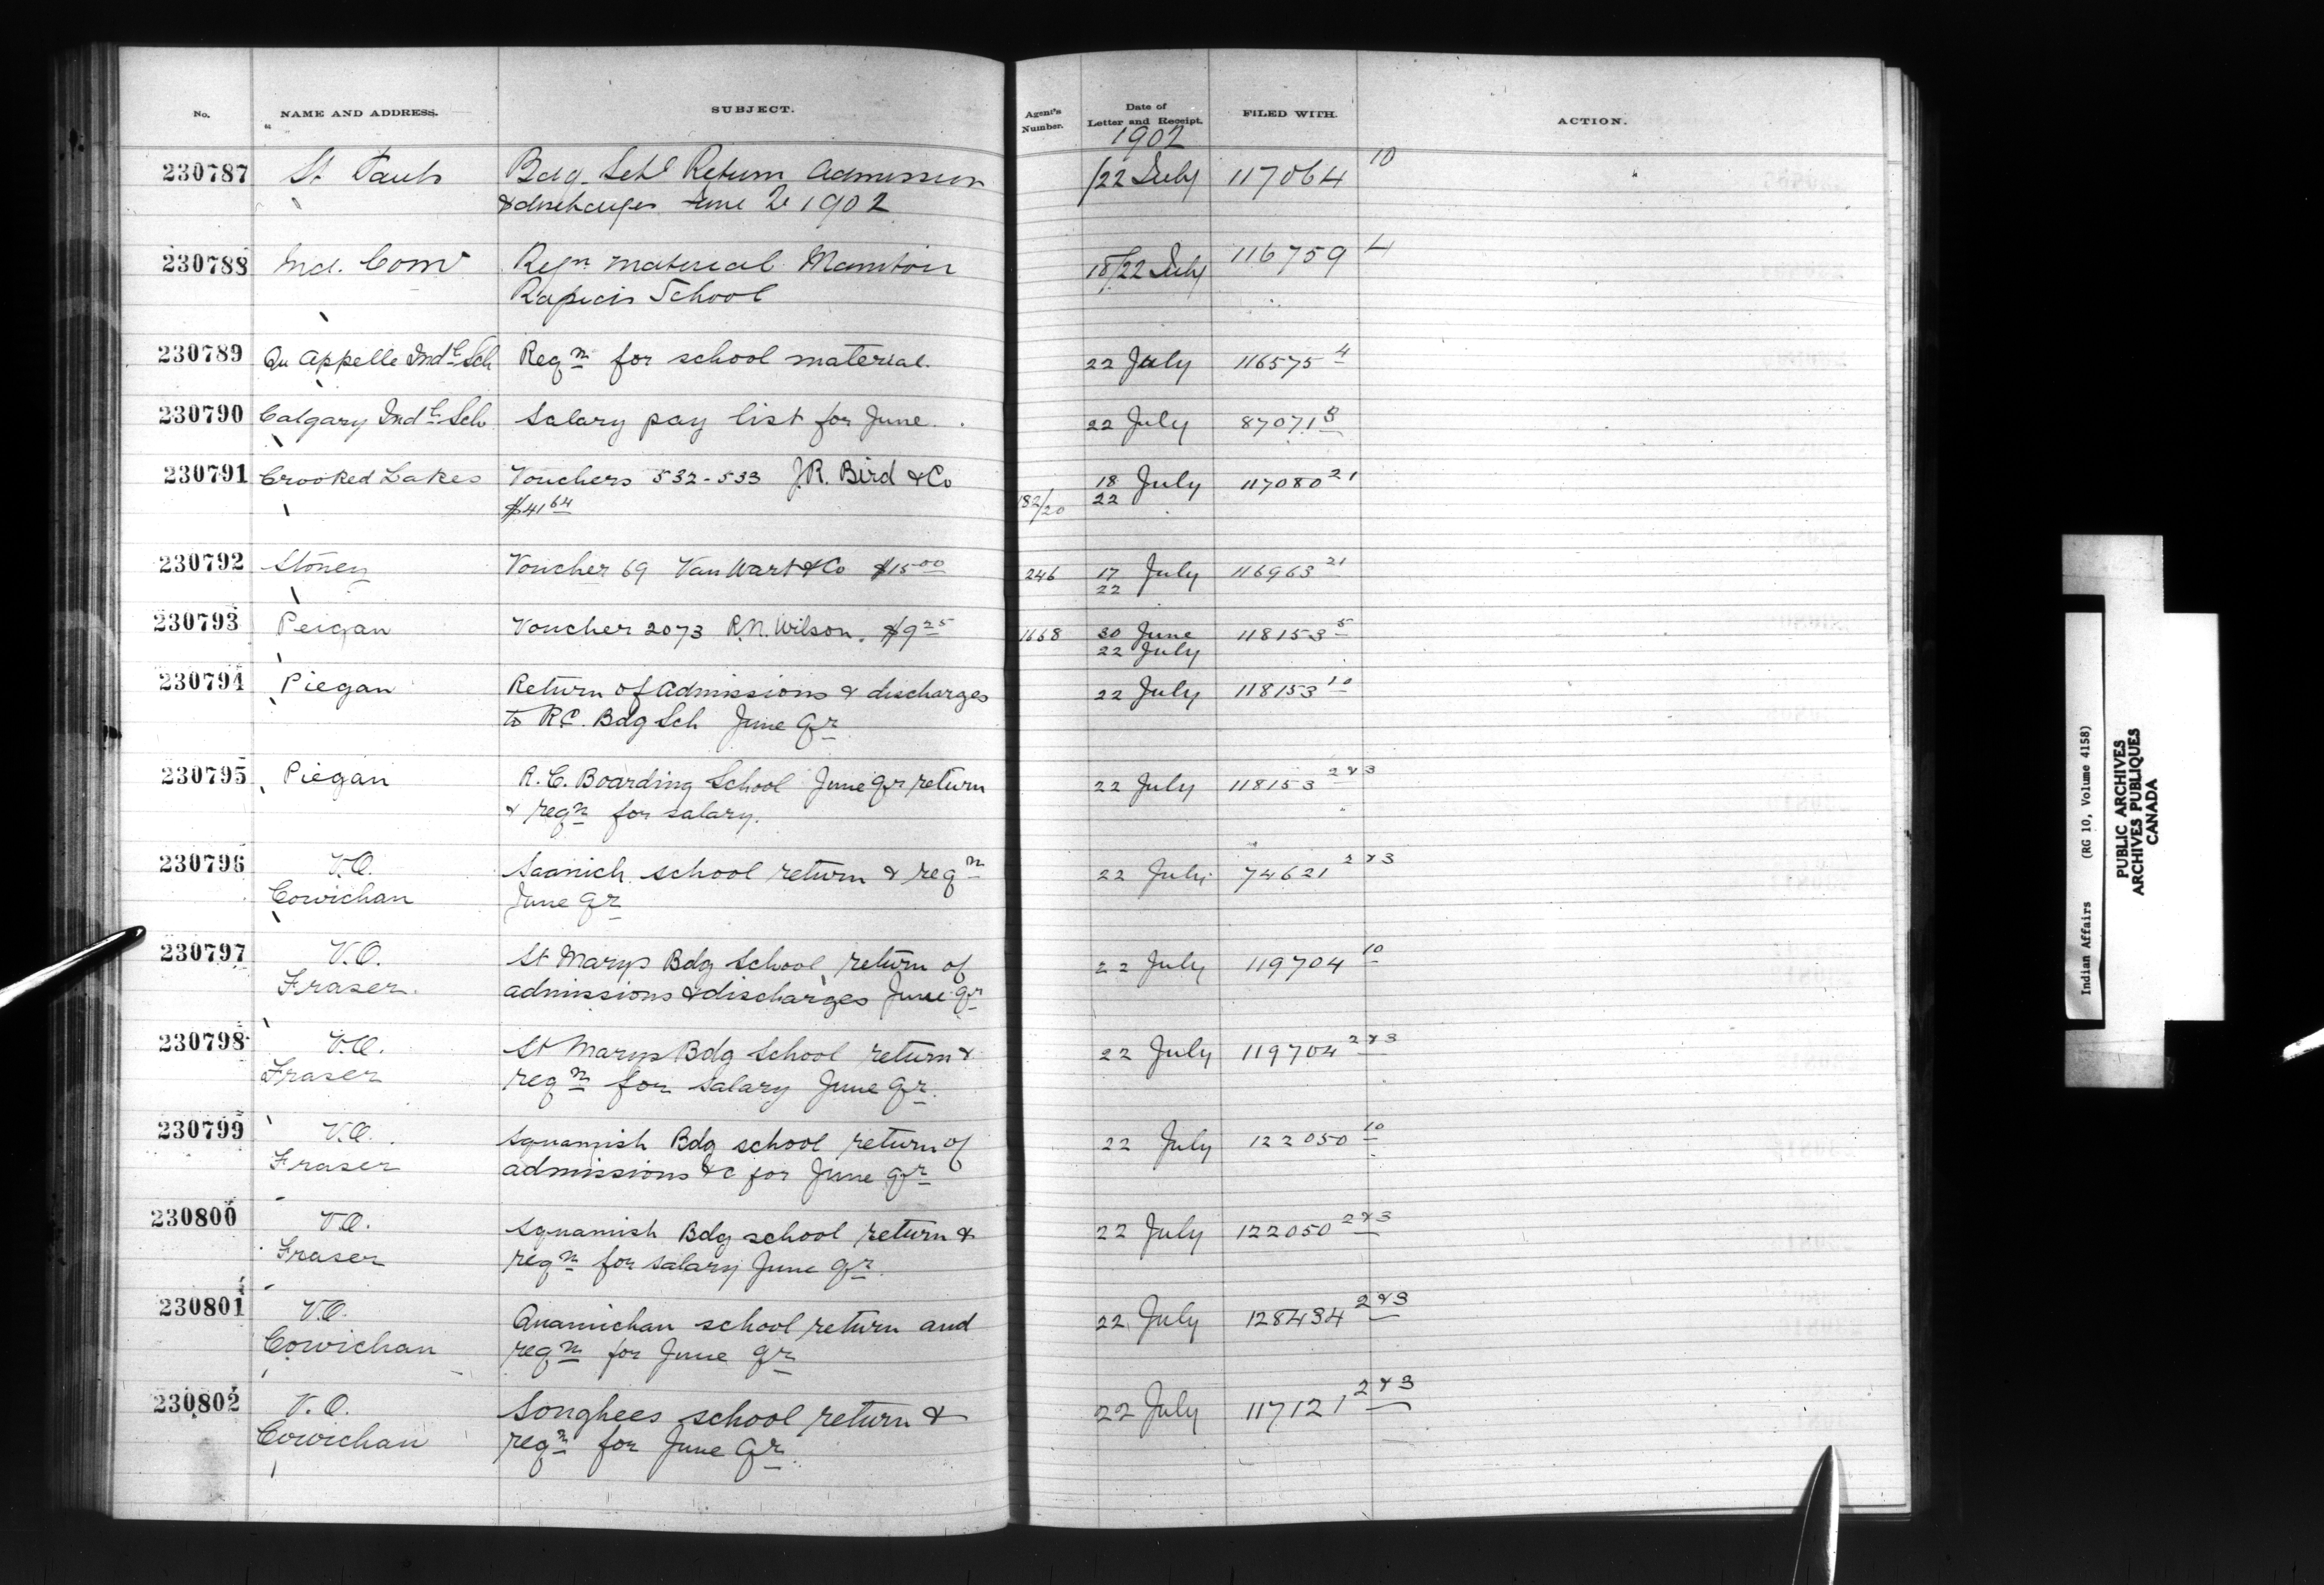 No. NAME AND ADDRESS. SUBJECT. Agent's Number. Date of Letter and Receipt. FILED WITH. ACTION.
1902
230787 St Pauls Bdg. Schl Return Admission /22 July 117064 10
& discharges June Qr 1902
230788 Ind. Comr Reqn material Manitou 18/22 July 116759 4
Rapids School
230789 Qu Appelle Indl Sch Reqn for school material. 22 July 116575 4
230790 Calgary Indl Sch Salary pay list for June. 22 July 87071 8
230791 Crooked Lakes Vouchers 532-533 J.R. Bird & Co 18 July 117080 21
$41 64 182/20 22
230792 Stoney Voucher 69 Van Wart & Co $15 00 246 17 July 116963 21
22
230793 Peigan Voucher 2073 R.N. Wilson. $9 25 1668 30 June 118153 5
22 July
230794 Piegan Return of Admissions & discharges 22 July 118153 10
to R.C. Bdg Sch June Qr
230795 Piegan R.C. Boarding School June Qr return 22 July 118153 2&3
& reqn for salary.
230796 V.O. Saanich school return & reqn 22 July 74621 2&3
Cowichan June Qr
230797 V.O. St Marys Bdg School, return of 22 July 119704 10
Fraser. admissions & discharges June Qr
230798 V.O. St Marys Bdg School return & 22 July 119704 2&3
Fraser reqn for salary June Qr.
230799 V.O. Squamish Bdg school return of 22 July 122050 10
Fraser admissions &c for June Qr
230800 V.O. Squamish Bdg school return & 22 July 122050 2&3
Fraser reqn for salary June Qr.
230801 V.O. Quamichan school return and 22 July 128434 2&3
Cowichan reqn for June Qr
230802 V.O. Songhees school return & 22 July 117121 2&3
Cowichan reqn for June Qr.
Indian Affairs (RG 10, Volume 4158)
PUBLIC ARCHIVES
ARCHIVES PUBLIQUES
CANADA